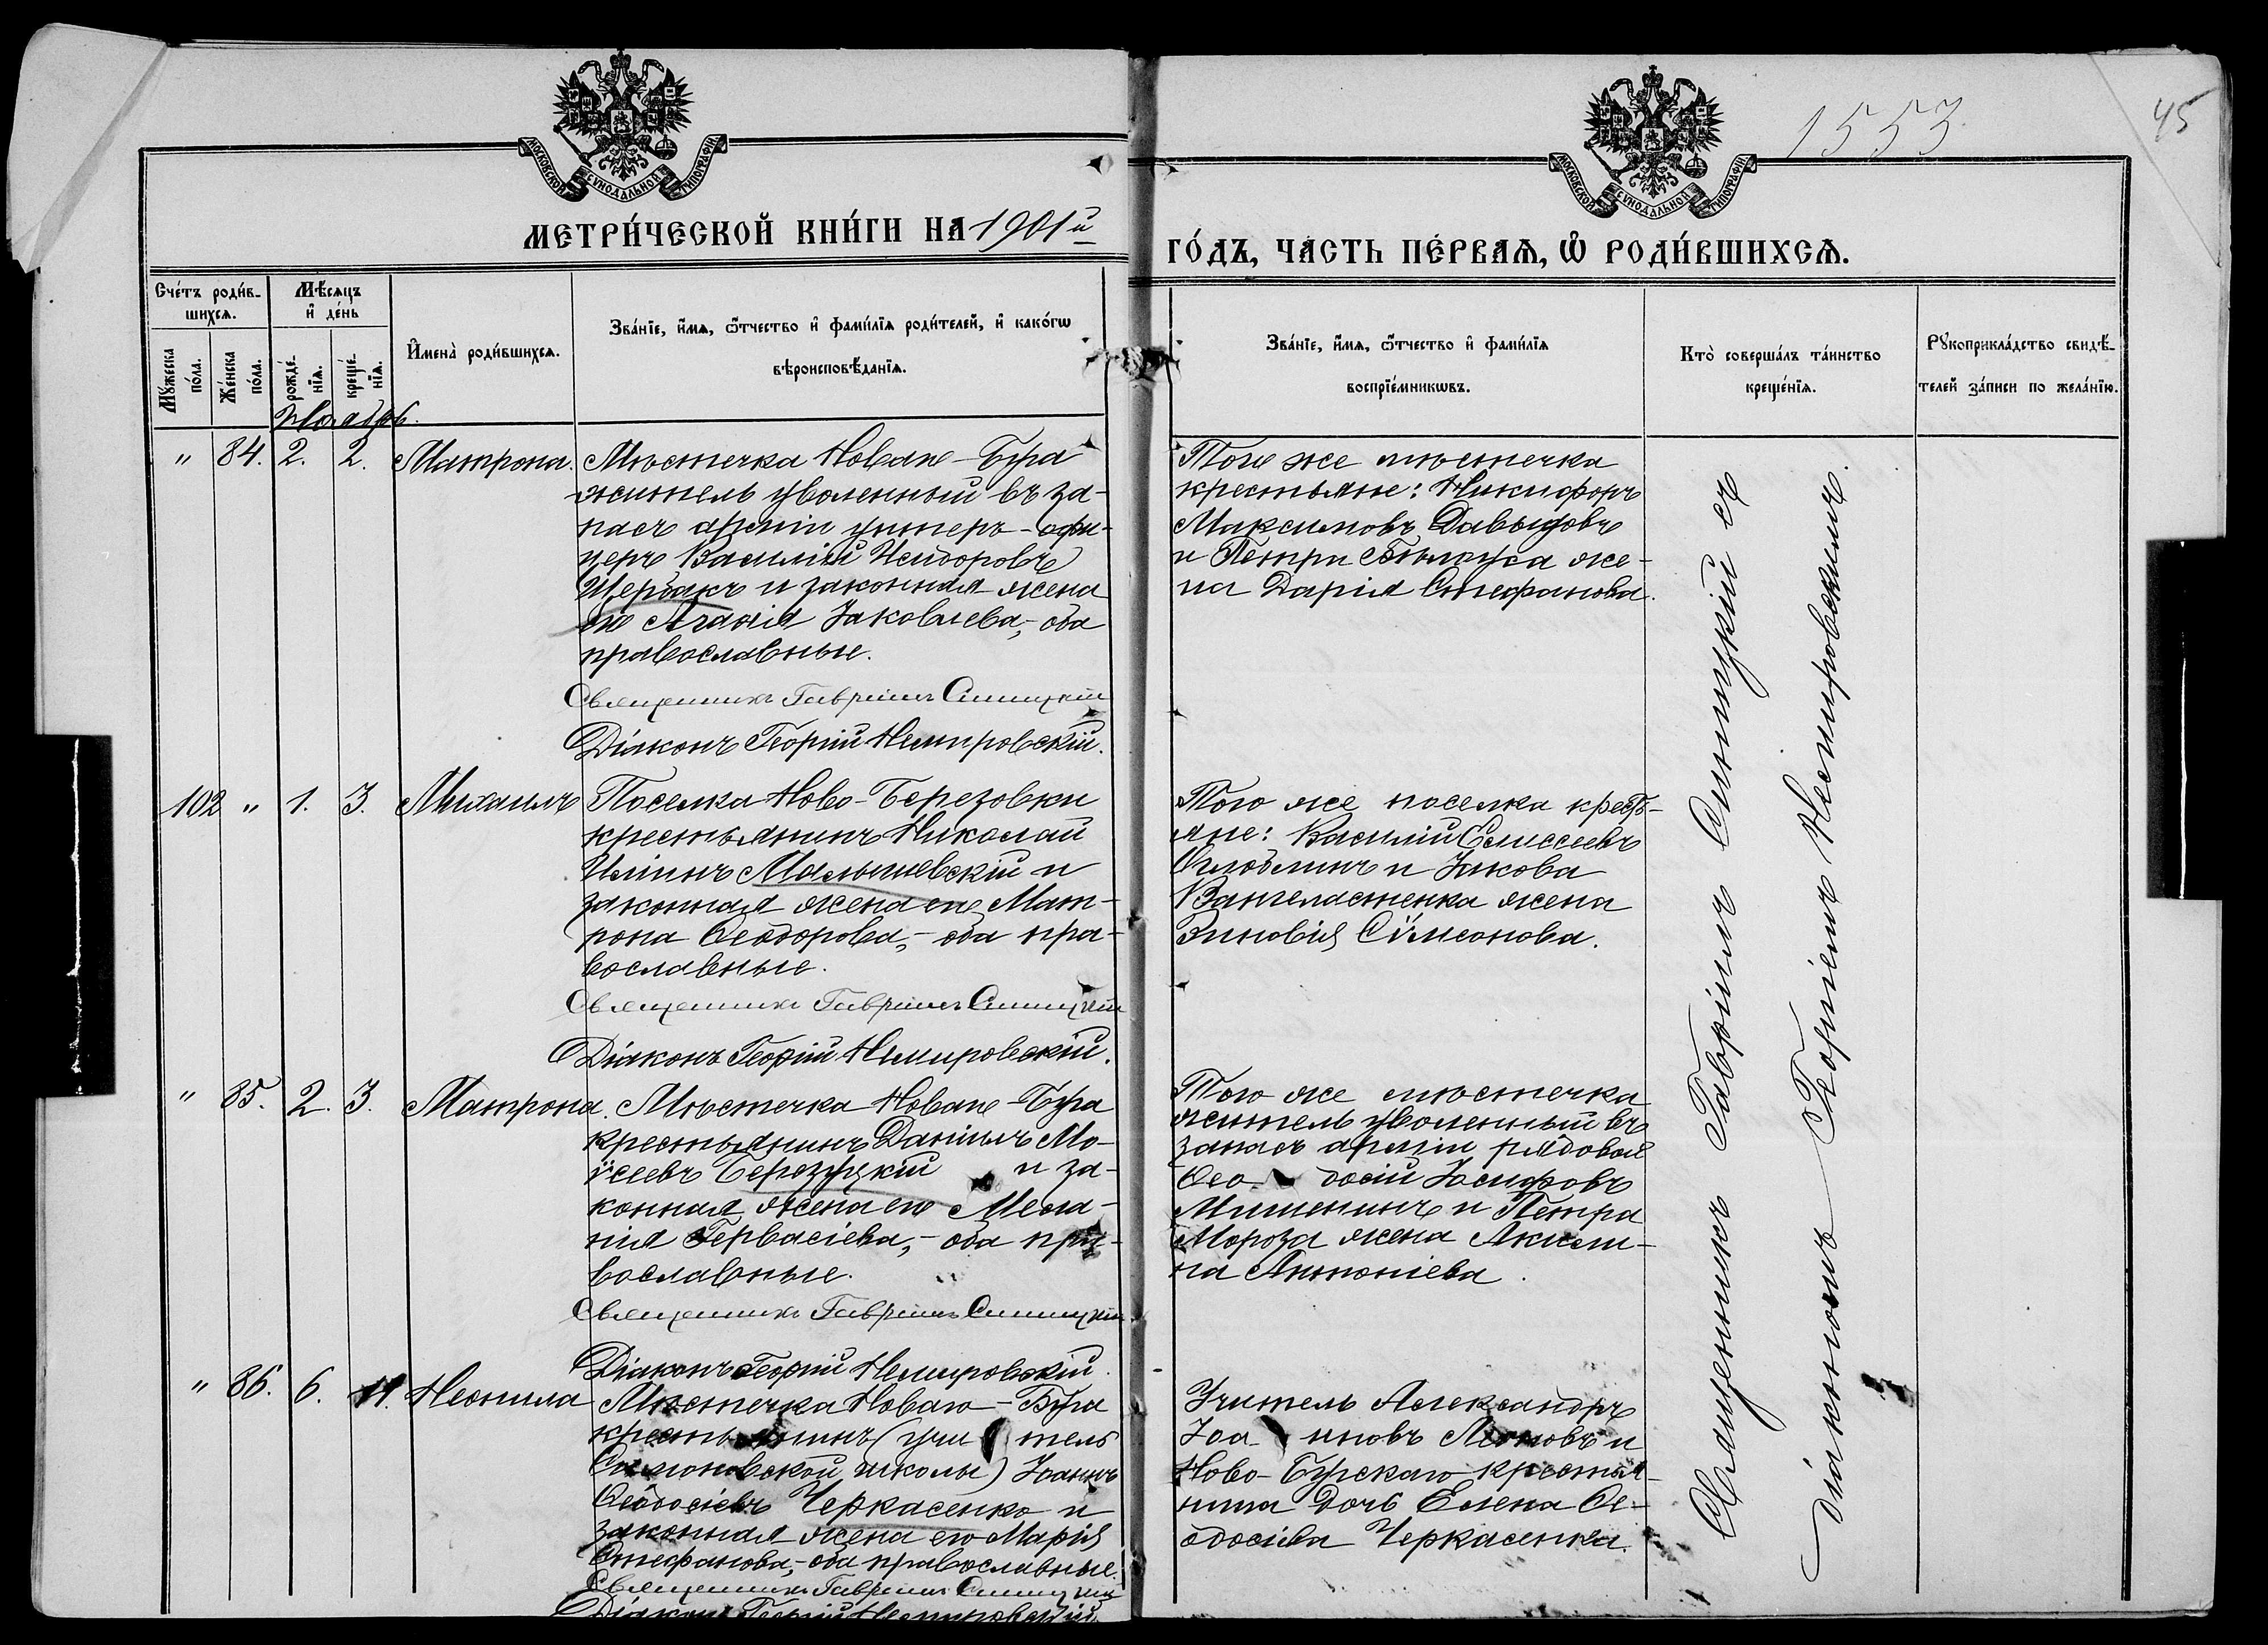 1553
45
МОСКОВСКОЙ СѴНОДАЛЬНОЙ ТИПОГРАФІИ
МОСКОВСКОЙ СѴНОДАЛЬНОЙ ТИПОГРАФІИ
МЕТРИ́ЧЕСКОЙ КНИ́ГИ НА 1901й
ГО́ДЪ, ЧА́СТЬ ПЕ́РВАѦ, Ѽ РОДИ́ВШИХСѦ.
Сче́тъ роди́в-
шихсѧ.
Мѣ́сѧцъ
и҆ де́нь
Мꙋ́жеска
по́ла.
Же́нска
по́ла.
рожде́-
нїѧ.
креще́-
нїѧ.
И҆мена̀ роди́вшихсѧ.
Зва́нїе, и҆́мѧ, ѻ҆́тчество и҆ фами́лїѧ роди́телей, и҆ како́гѡ
вѣроисповѣ́данїѧ.
Зва́нїе, и҆́мѧ, ѻ҆́тчество и҆ фами́лїѧ
воспрїе́мникѡвъ.
Кто̀ соверша́лъ та́инство
креще́нїѧ.
Рꙋкоприкла́дство свидѣ́-
телей за́писи по жела́нїю.
Ноябрь.
" 84. 2. 2. Матрона.
Мѣстечка Новаго-Буга
житель уволенный въ за-
пасъ арміи унтеръ-офи-
церъ Василій Исидоровъ
Щербакъ и законная жена
его Агафія Іаковлева,- оба
православные.
Священникъ Гавріилъ Синицкій
Діаконъ Георгій Немировскій.
Того же мѣстечка
крестьяне: Никифоръ
Максимовъ Давыдовъ
и Петра Бѣлоуса же-
на Дарія Стефанова.
102 " 1. 3. Михаилъ
Поселка Ново-Березовки
крестьянинъ Николай
Иліинъ Малышевскій и
законная жена его Мат-
рона Ѳеодорова,- оба пра-
вославные.
Священникъ Гавріилъ Синицкій
Діаконъ Георгій Немировскій.
Того же поселка крестъ-
яне: Василій Елиссеевъ
и Іакова
жена
Зиновія Сѵмеонова.
" 85. 2. 3. Матрона.
Мѣстечка Новаго-Буга
крестьянинъ Даніилъ Мо-
ѵсеевъ Березуцкій и за-
конная жена его Мела-
нія Гервасіева,- оба пра-
вославные.
Священникъ Гавріилъ Синицкій
Діаконъ Георгій Немировскій.
Того же мѣстечка
житель уволенный въ
запасъ арміи рядовой
Ѳео досій Іосифовъ
Мишенинъ и Петра
Мороза жена Акили-
на Антоніева.
" 86. 6. 11. Неонила
Мѣстечка Новаго-Буга
крестьянинъ (учи тель
школы) Іоаннъ
Ѳеодосіевъ Черкасенко и
законная жена его Марія
Стефанова,- оба православные.
Священникъ Гавріилъ Синицкій
Діаконъ Георгій Немировскій.
Учитель Александръ
Іоа нновъ Леоновъ и
Ново-Бугскаго крестья-
нина дочь Елена Ѳе-
одосіева Черкасенка.
Священникъ Гавріилъ Синицкій съ
Діакономъ Георгіемъ Немировскимъ.